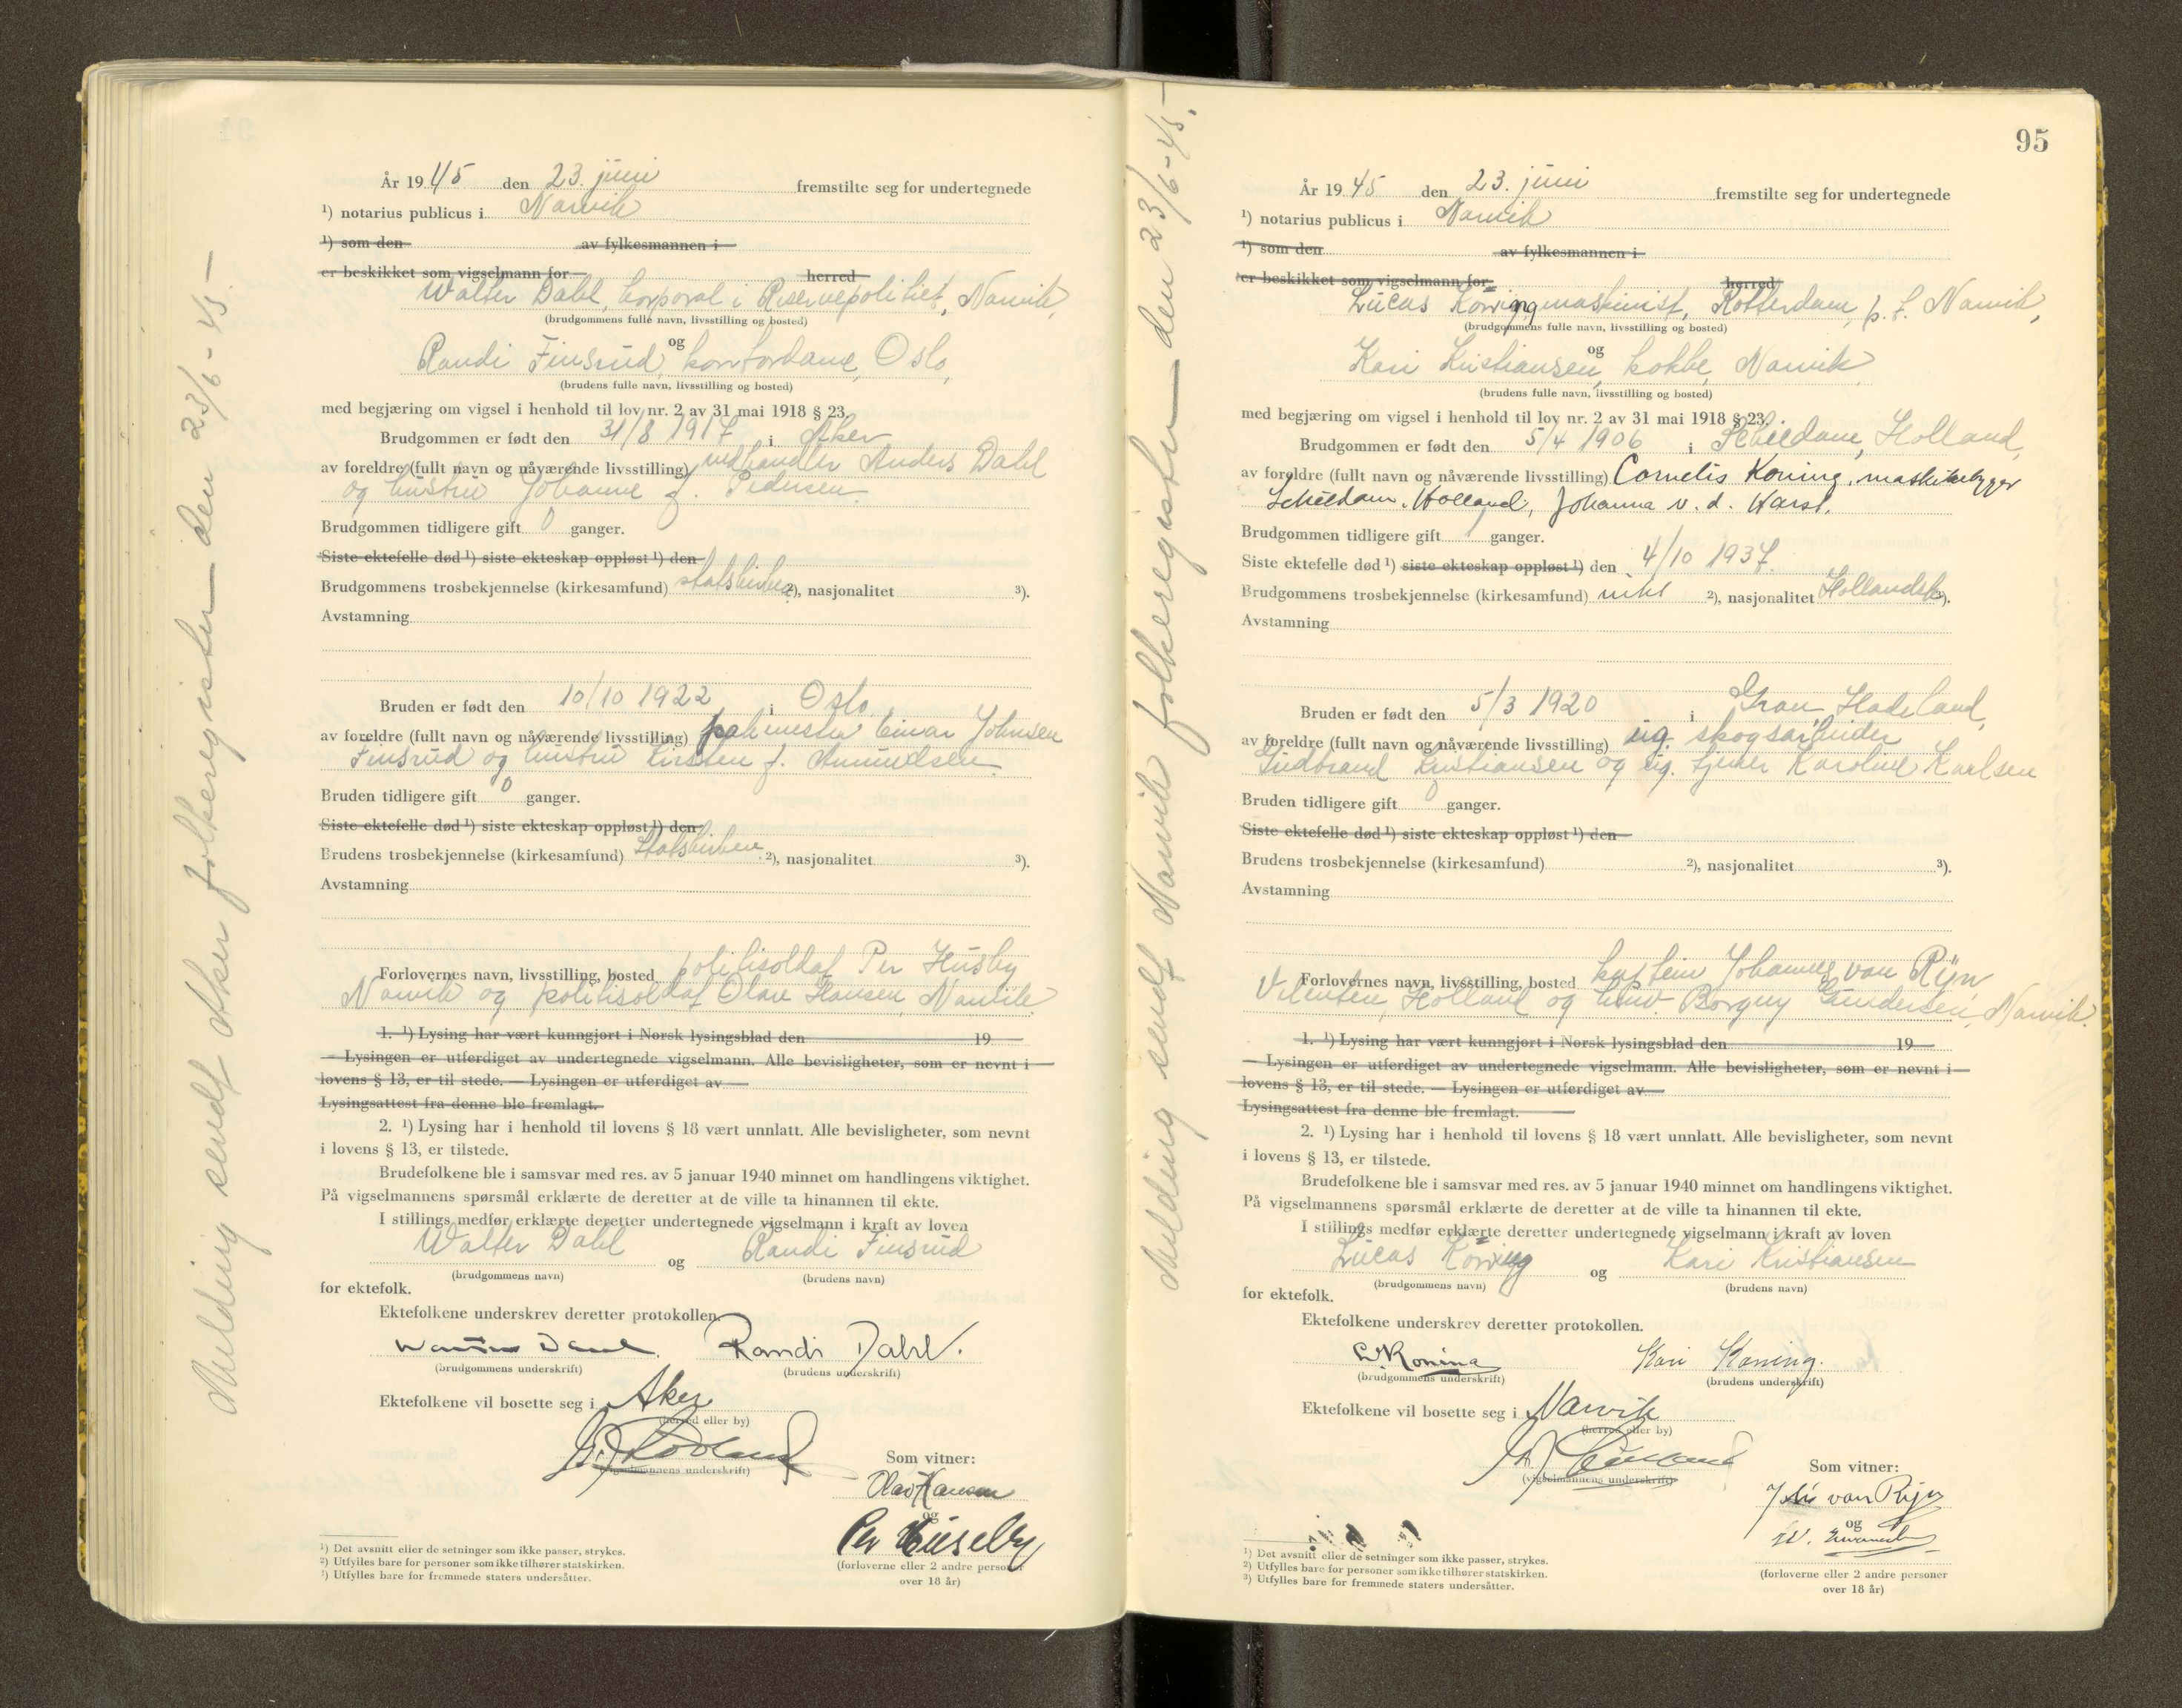 År 1945 den 23. juni fremstilte seg for undertegnede
1) notarius publicus i Narvik
1) som den av fylkesmannen i
er beskikket som vigselmann for herred
Walter Dahl, korporal i Reservepolitiet, Narvik,
(brudgommens fulle navn, livsstilling og bosted)
og
Randi Finsrud, kontordame, Oslo,
(brudens fulle navn, livsstilling og bosted)
med begjæring om vigsel i henhold til lov nr. 2 av 31 mai 1918 § 23.
Brudgommen er født den 31/8 1917 i Aker
av foreldre (fullt navn og nåværende livsstilling) vedhandler Anders Dahl
og hustru Johanne f. Pedersen.
Brudgommen tidligere gift 0 ganger.
Siste ektefelle død 1) siste ekteskap oppløst 1) den
Brudgommens trosbekjennelse (kirkesamfund) statskirken 2), nasjonalitet 3).
Avstamning
Bruden er født den 10/10 1922 i Oslo
av foreldre (fullt navn og nåværende livsstilling) pakmester Einar Johnsen
Finsrud og hustru Kirsten f. Amundsen.
Bruden tidligere gift 0 ganger.
Siste ektefelle død 1) siste ekteskap oppløst 1) den
Brudens trosbekjennelse (kirkesamfund) Statskirken 2), nasjonalitet 3).
Avstamning
Forlovernes navn, livsstilling, bosted politisoldat Per Husby
Narvik og politisoldat Olav Hansen, Narvik.
1. 1) Lysing har vært kunngjort i Norsk lysingsblad den 19
— Lysingen er utferdiget av undertegnede vigselmann. Alle bevisligheter, som er nevnt i
lovens § 13, er til stede. — Lysingen er utferdiget av
Lysingsattest fra denne ble fremlagt.
2. 1) Lysing har i henhold til lovens § 18 vært unnlatt. Alle bevisligheter, som nevnt
i lovens § 13, er tilstede.
Brudefolkene ble i samsvar med res. av 5 januar 1940 minnet om handlingens viktighet.
På vigselmannens spørsmål erklærte de deretter at de ville ta hinannen til ekte.
I stillings medfør erklærte deretter undertegnede vigselmann i kraft av loven
Walter Dahl og Randi Finsrud
(brudgommens navn) (brudens navn)
for ektefolk.
Ektefolkene underskrev deretter protokollen.
Walter Dahl. Randi Dahl.
(brudgommens underskrift) (brudens underskrift)
Ektefolkene vil bosette seg i Aker
(herred eller by)
(vigselmannens underskrift)
Som vitner:
Olav Hansen
og
Per Huseby
(forloverne eller 2 andre personer
over 18 år)
1) Det avsnitt eller de setninger som ikke passer, strykes.
2) Utfylles bare for personer som ikke tilhører statskirken.
3) Utfylles bare for fremmede staters undersåtter.
Melding sendt Aker folkeregister den 23/6-45.
95
År 1945 den 23. juni fremstilte seg for undertegnede
1) notarius publicus i Narvik
1) som den av fylkesmannen i
er beskikket som vigselmann for herred
Lucas Koning, maskinist, Rotterdam, p.t. Narvik,
(brudgommens fulle navn, livsstilling og bosted)
og
Kari Kristiansen, kokke, Narvik
(brudens fulle navn, livsstilling og bosted)
med begjæring om vigsel i henhold til lov nr. 2 av 31 mai 1918 § 23.
Brudgommen er født den 5/4 1906 i Schiedam, Holland,
av foreldre (fullt navn og nåværende livsstilling) Cornelis Koning, maskinbygger
Schiedam, Holland, Johanna v. d. Harst.
Brudgommen tidligere gift 1 ganger.
Siste ektefelle død 1) siste ekteskap oppløst 1) den 4/10 1937.
Brudgommens trosbekjennelse (kirkesamfund) intet 2), nasjonalitet Hollandsk 3).
Avstamning
Bruden er født den 5/3 1920 i Gran, Hadeland,
av foreldre (fullt navn og nåværende livsstilling) ug. skogsarbeider
Gudbrand Kristiansen og ug. tjener Karoline Karlsen
Bruden tidligere gift 0 ganger.
Siste ektefelle død 1) siste ekteskap oppløst 1) den
Brudens trosbekjennelse (kirkesamfund) 2), nasjonalitet 3).
Avstamning
Forlovernes navn, livsstilling, bosted kaptein Johannes van Rijn,
Holland og Borgny Gundersen, Narvik.
1. 1) Lysing har vært kunngjort i Norsk lysingsblad den 19
— Lysingen er utferdiget av undertegnede vigselmann. Alle bevisligheter, som er nevnt i
lovens § 13, er til stede. — Lysingen er utferdiget av
Lysingsattest fra denne ble fremlagt.
2. 1) Lysing har i henhold til lovens § 18 vært unnlatt. Alle bevisligheter, som nevnt
i lovens § 13, er tilstede.
Brudefolkene ble i samsvar med res. av 5 januar 1940 minnet om handlingens viktighet.
På vigselmannens spørsmål erklærte de deretter at de ville ta hinannen til ekte.
I stillings medfør erklærte deretter undertegnede vigselmann i kraft av loven
Lucas Koning og Kari Kristiansen
(brudgommens navn) (brudens navn)
for ektefolk.
Ektefolkene underskrev deretter protokollen.
L. Koning Kari Koning.
(brudgommens underskrift) (brudens underskrift)
Ektefolkene vil bosette seg i Narvik
(herred eller by)
(vigselmannens underskrift)
Som vitner:
van Rijn
og
(forloverne eller 2 andre personer
over 18 år)
1) Det avsnitt eller de setninger som ikke passer, strykes.
2) Utfylles bare for personer som ikke tilhører statskirken.
3) Utfylles bare for fremmede staters undersåtter.
Melding sendt Narvik folkeregister den 23/6-45.